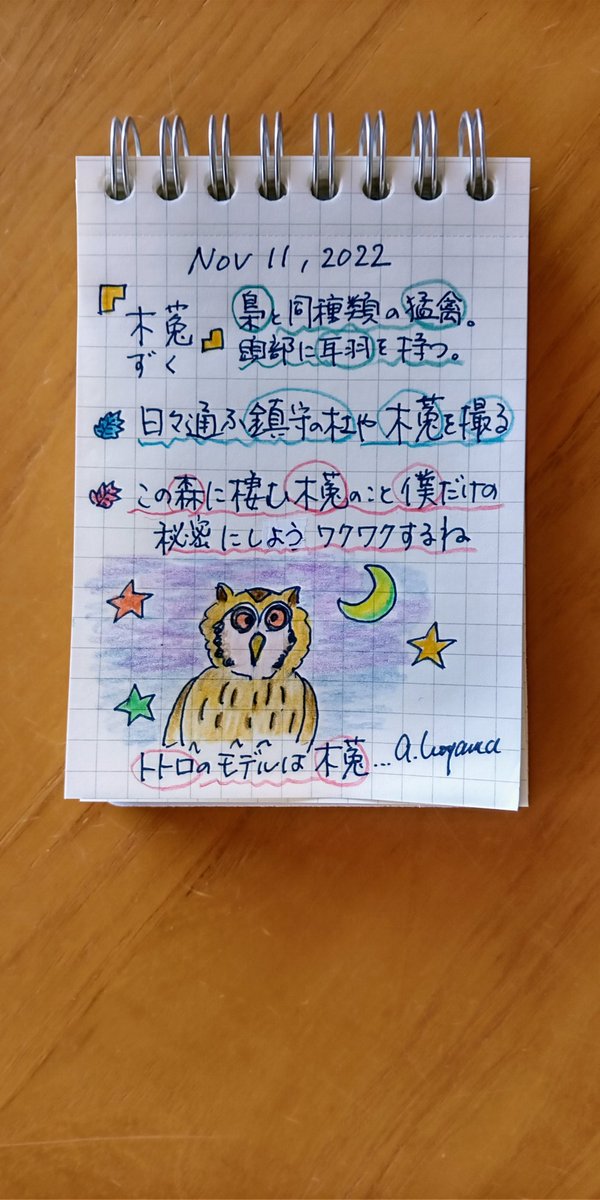 Nov 11, 2022
木菟
ずく
梟と同種類の猛禽。
頭部に耳羽を持つ。
日々通ふ鎮守の杜や木菟を撮る
この森に棲む木菟のこと僕だけの
秘密にしよう ワクワクするね
トトロのモデルは木菟…